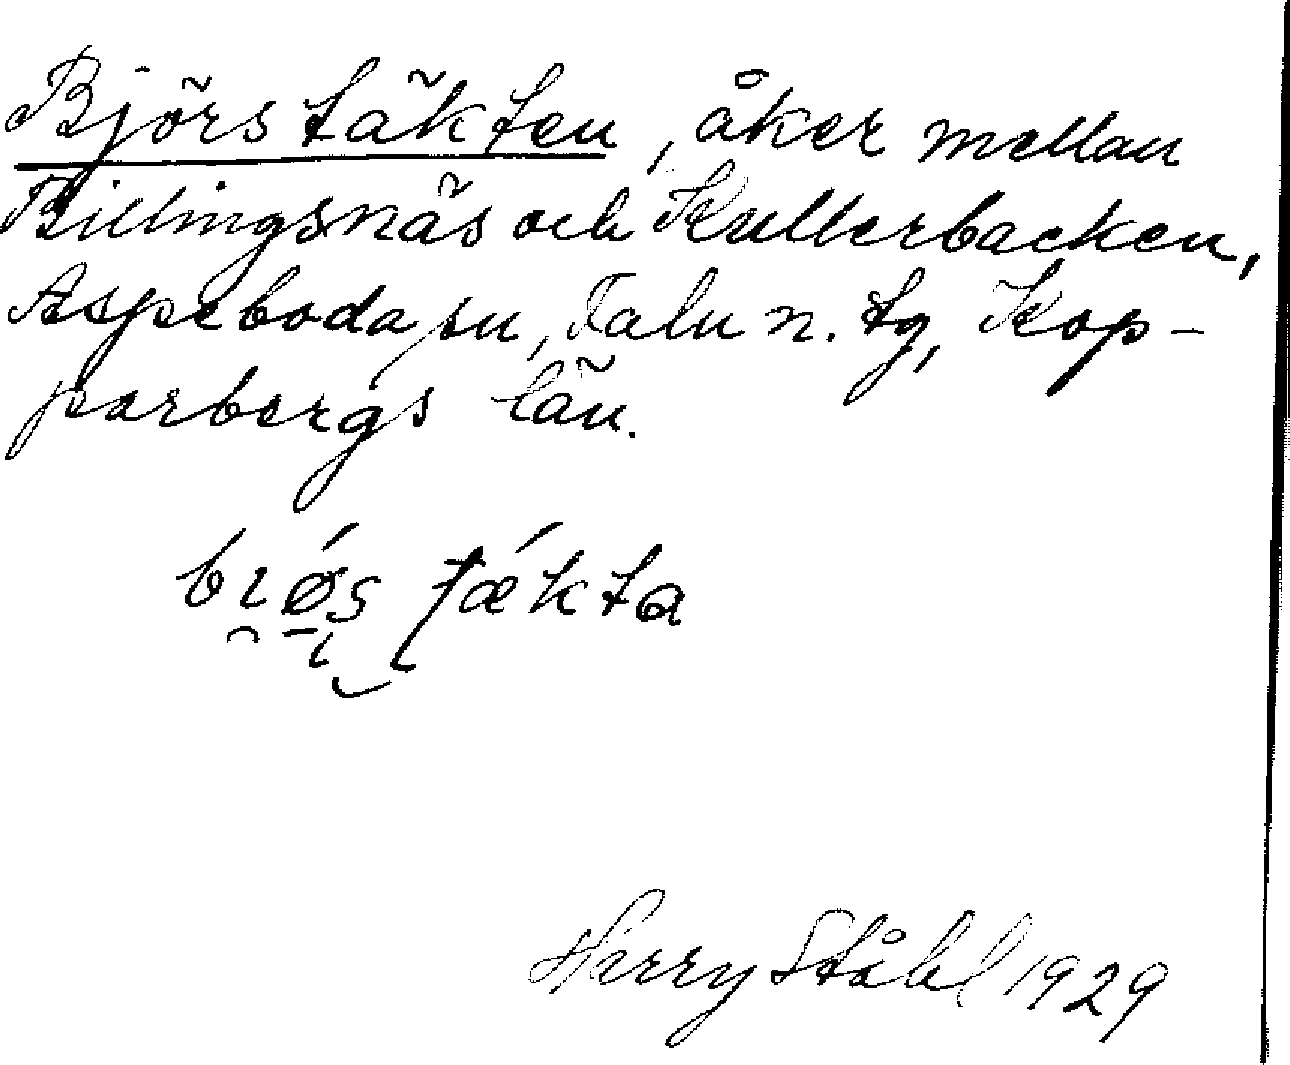 Björstäkten, åker mellan
Billingsnäs och Kullerbacken,
Aspeboda sn, Falu n. tg, Kop-
parbergs län.
Harry Ståhl 1929